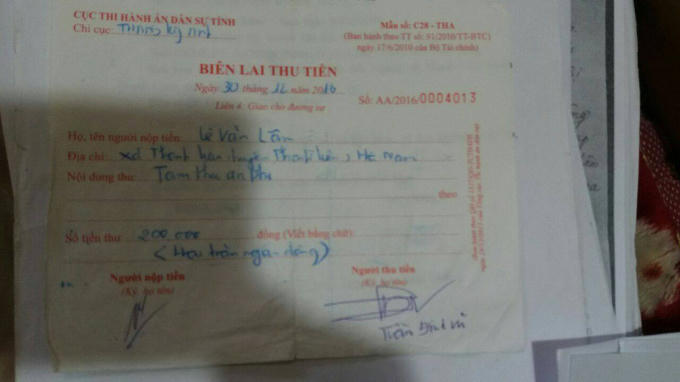 CỤC THI HÀNH ÁN DÂN SỰ TỈNH
Chi cục:
Mẫu số: C28 - THA
(Ban hành theo TT số: 91/2010/TT-BTC)
ngày 17/6/2010 của Bộ Tài chính)
BIÊN LAI THU TIỀN
Ngày 30 tháng 12 năm 2016
Liên 4: Giao cho đương sự
Số: AA/2016/0004013
Họ, tên người nộp tiền: Lê Văn
Địa chỉ: xã Thanh huyện Thanh Liêm, Hà Nam
Nội dung thu: Tạm thu án phí
theo
Số tiền thu: 200.000 đồng (Viết bằng chữ):
(Hai trăm ngàn đồng)
Người nộp tiền
(Ký, họ tên)
Người thu tiền
(Ký, họ tên)
Trần Đình